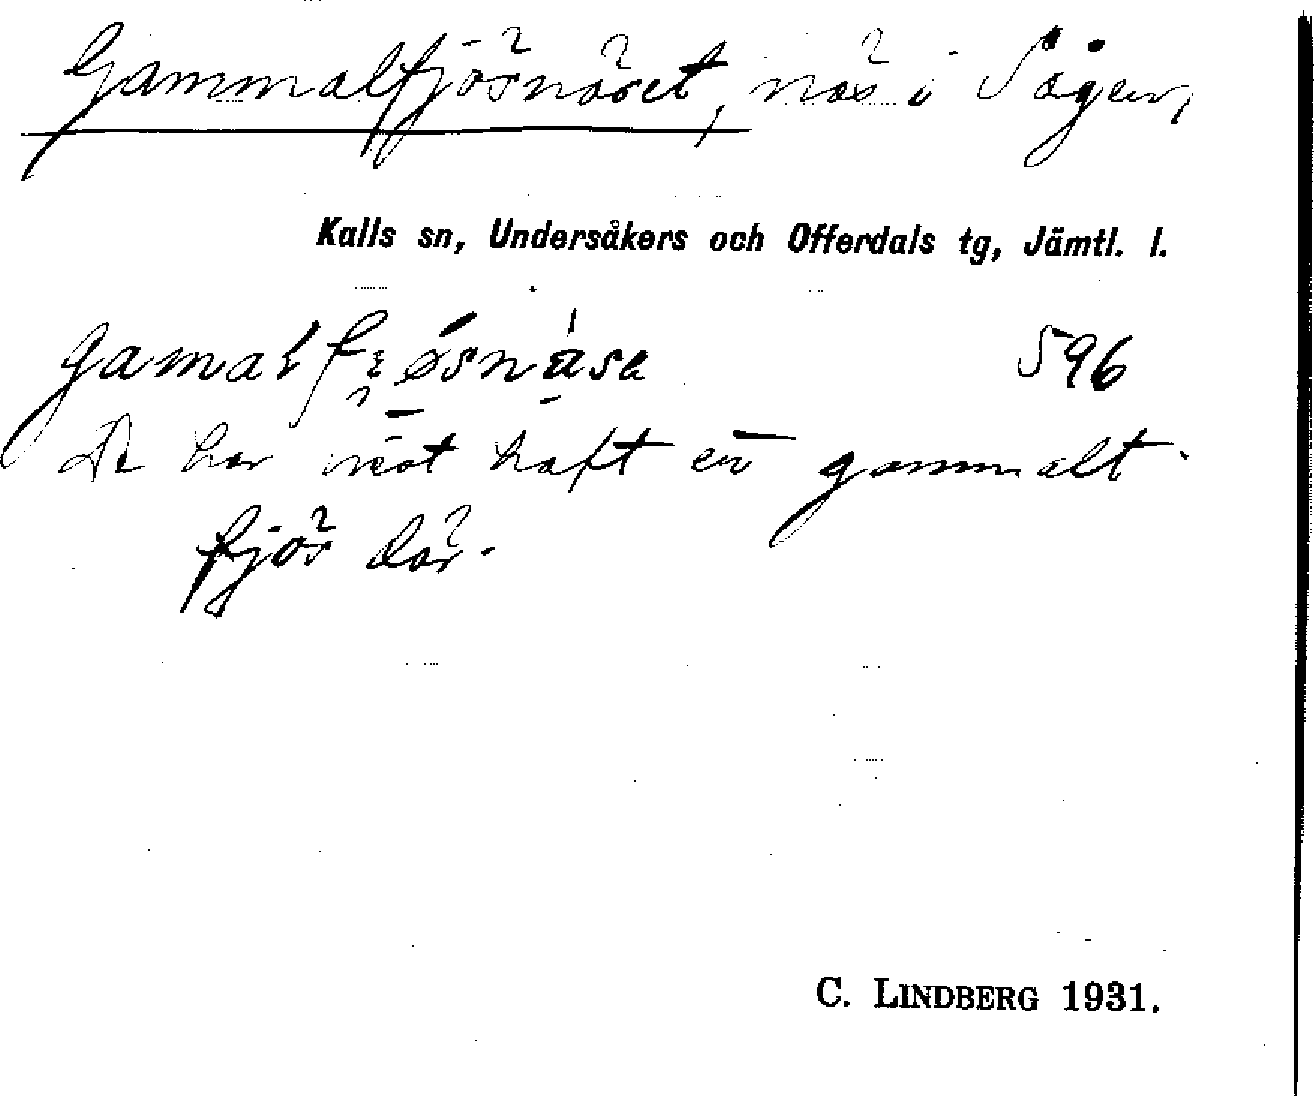 Gammalfjösnäset, näs i Sågen,
Kalls sn, Undersåkers och Offerdals tg, Jämtl. l.
596
De har väst haft en gammalt
fjös där.
C. LINDBERG 1931.